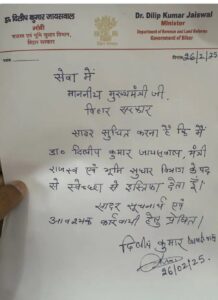 डा० दिलीप कुमार जायसवाल
मंत्री
राजस्व एवं भूमि सुधार विभाग,
बिहार सरकार
Dr. Dilip Kumar Jaiswal
Minister
Department of Revenue and Land Reforms
Government of Bihar
दिनांक 26/2/25
सेवा में
माननीय मुख्यमंत्री जी,
बिहार सरकार
सादर सूचित करना है कि मैं
डा० दिलीप कुमार जायसवाल, मंत्री
राजस्व एवं भूमि सुधार विभाग के पद
से स्वेच्छा से इस्तिफा देता हूँ।
सादर सूचनार्थ एवं
आवश्यक कार्रवाई हेतु प्रेषित।
दिलीप कुमार जायसवाल
26/02/25.